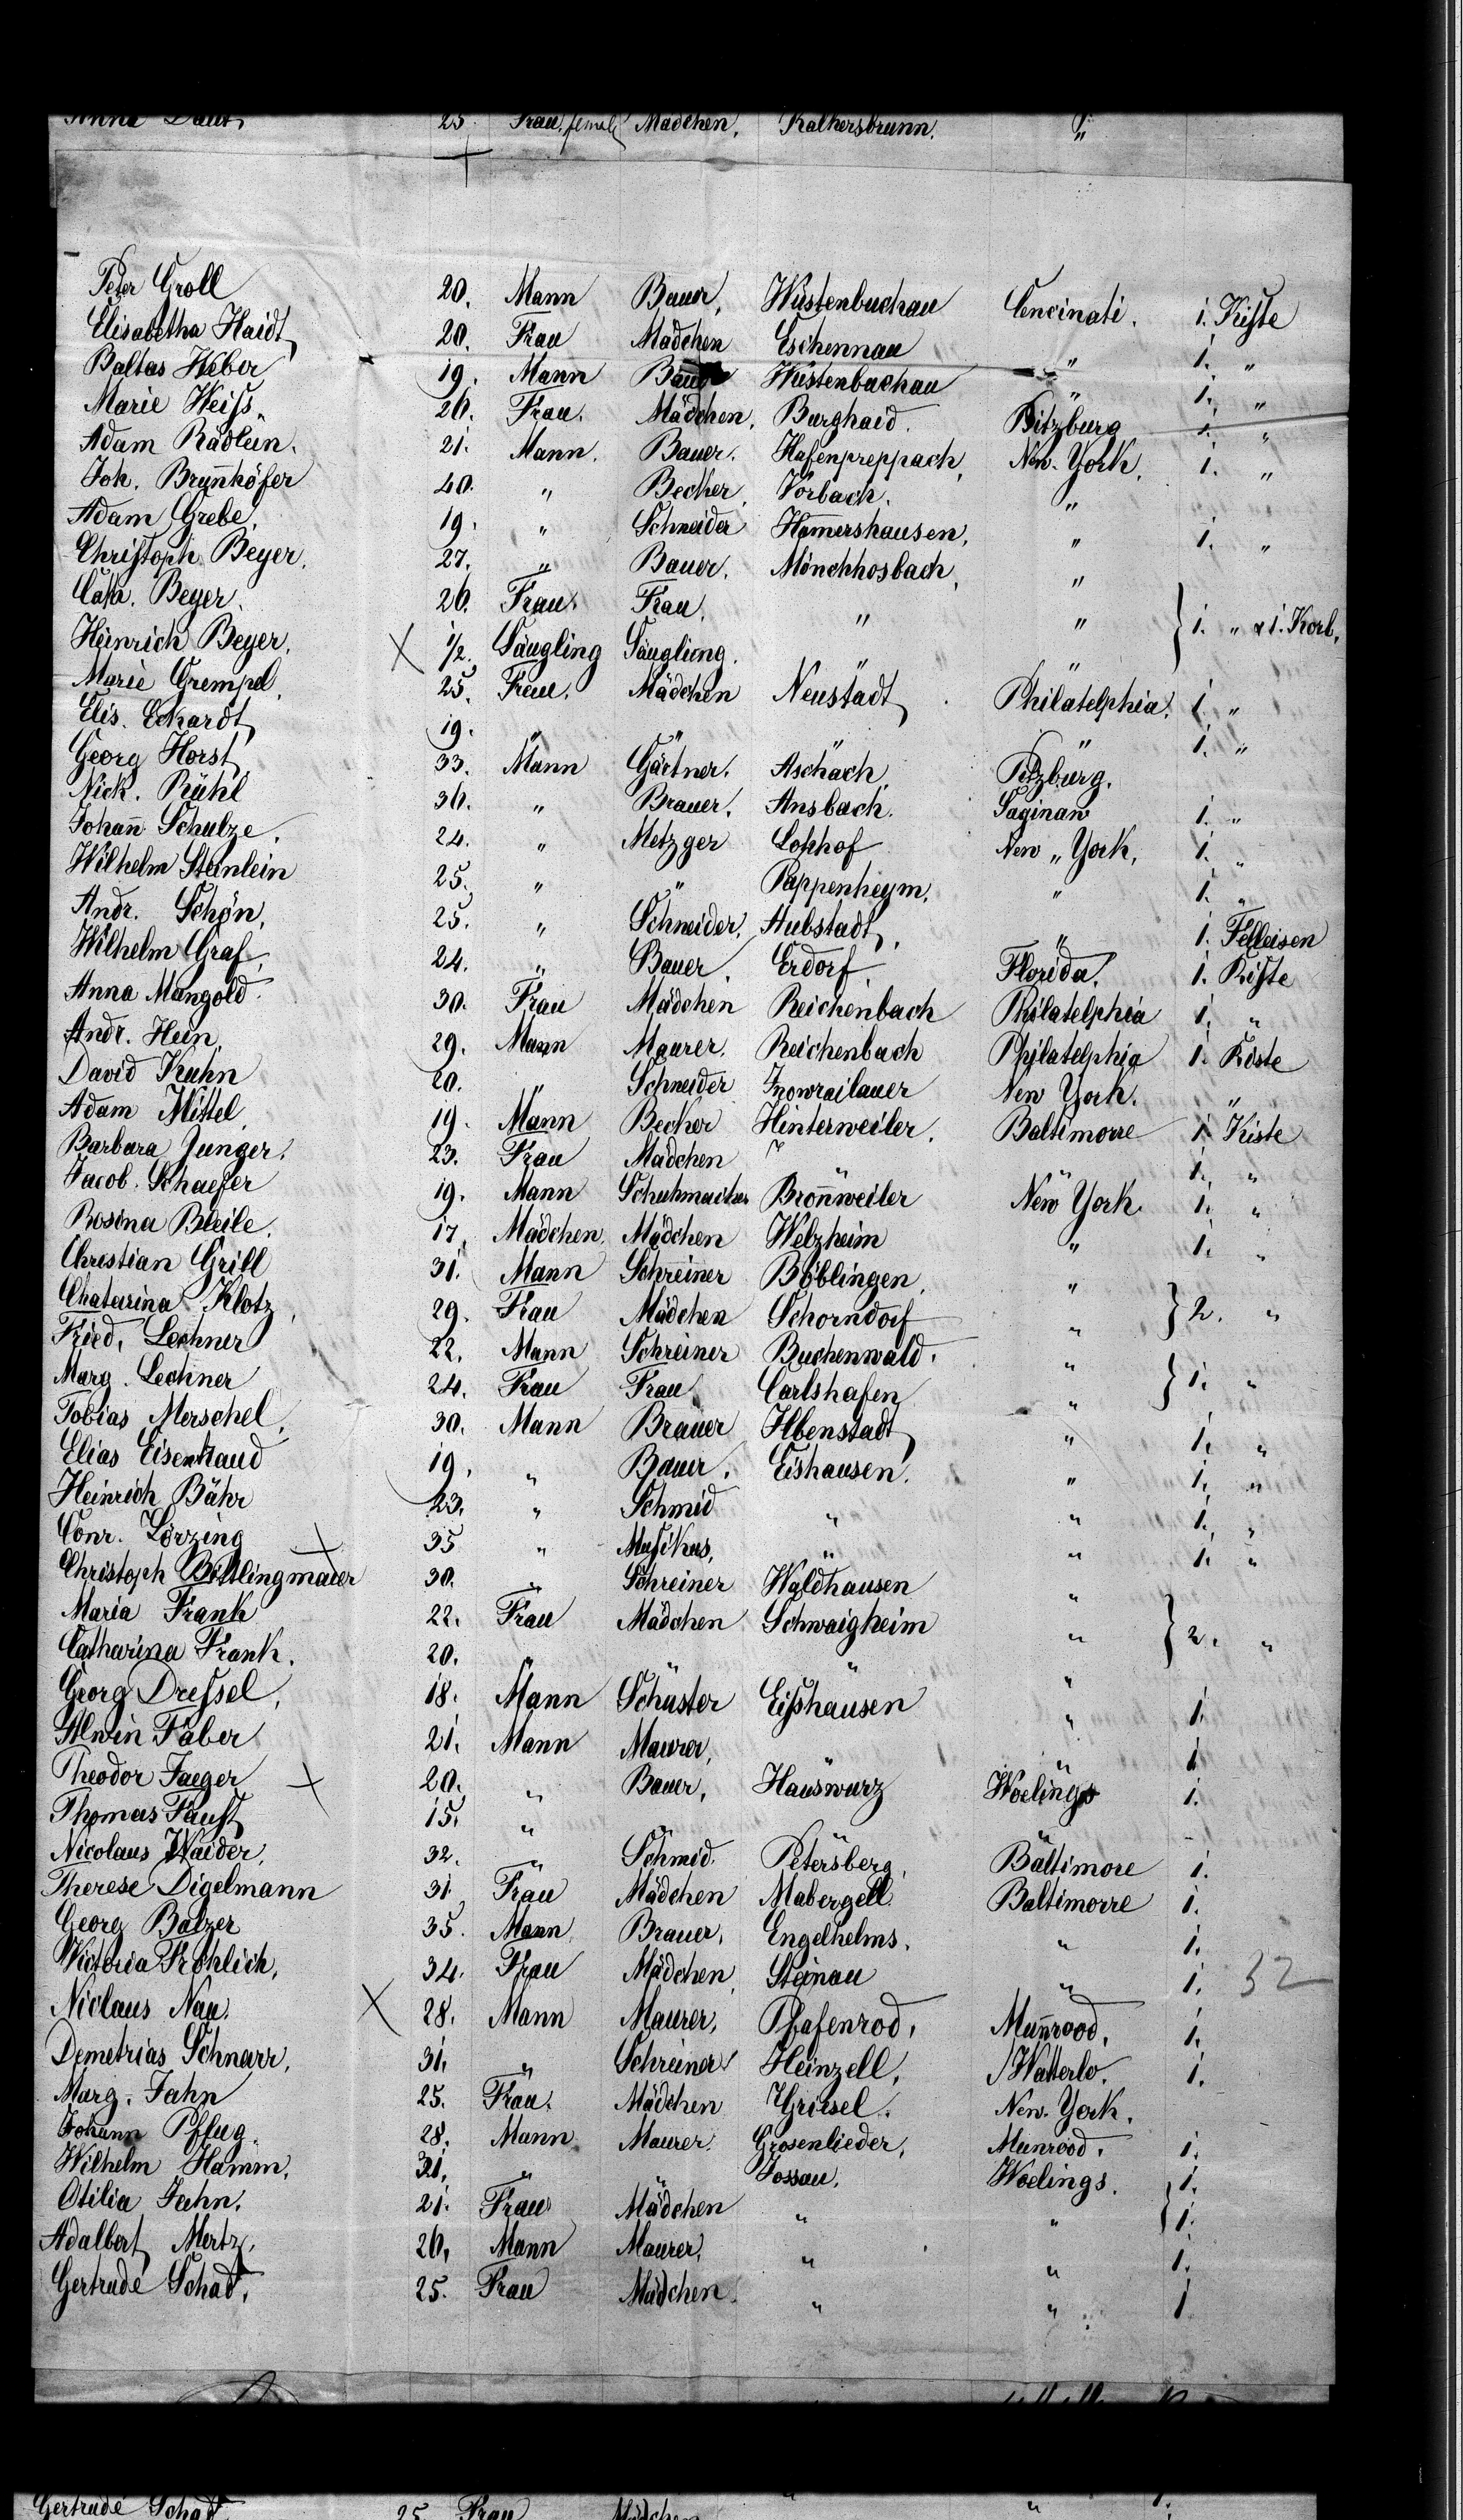 Anna Daut, 25. Frau, female Mädchen, Kalkersbrunn. "
Peter Groll 20. Mann Bauer, Wüstenbuchau Cencinati. 1. Kiste
Elisabetha Haidt 20. Frau Mädchen Eschennau " 1. "
Baltas Weber 19. Mann Bauer Wüstenbachau " 1. "
Marie Weiss. 26. Frau. Mädchen, Burghaid. Pitzburg 1. "
Adam Rädlein. 21. Mann. Bauer. Hafenpreppach, New-York. 1. "
Joh. Brun̄höfer 40. " Becker Vorbach. "
Adam Grebe. 19. " Schneider Hamershausen, " 1. "
Christoph Beyer. 27. " Bauer. Mönchhosbach, "
Cath. Beyer. 26. Frau. Frau. " " } 1. " & 1. Korb,
Heinrich Beyer. X 1/2. Säugling Säugling. " "
Marie Grempel, 25. Frau. Mädchen Neustadt Philatelphia. 1. "
Elis. Eckardt 19. " " " " 1. "
Georg Horst 33. Mann Gärtner. Aschach Pitzburg.
Nick. Rühl 36. " Brauer. Ansbach. Saginaw 1. "
Johan̄ Schulze. 24. " Metzger Lohhof New "York, 1. "
Wilhelm Steinlein 25. " " Pappenheym. " 1. "
Andr. Schön. 25. " Schneider. Aubstadt, " 1. Felleisen
Wilhelm Graf. 24. " Bauer. Erdorf Florida. 1. Kiste
Anna Mangold. 30. Frau Mädchen Reichenbach Philatelphia 1. "
Andr. Hein, 29. Mann Maurer. Reichenbach Philatelphia 1. Kiste
David Kuhn 20. " Schneider Inowrailauer New York. "
Adam Mittel 19. Mann Becker Hinterweiler. Baltimorre 1. Kiste
Barbara Junger. 23. Frau Mädchen " " 1. "
Jacob. Schaefer 19. Mann Schuhmacher Bron̄weiler New York. 1. "
Rosina Bleile. 17. Mädchen. Mädchen Welzheim " 1. "
Christian Grill 31. Mann Schreiner Böblingen. "
Chatarina Klotz 29. Frau Mädchen Schorndorf " } 2. "
Fried. Lechner 22. Mann Schreiner Buchenwald. "
Marg. Lechner 24. Frau Frau Carlshafen " } 1. "
Tobias Merschel. 30. Mann Brauer Ilbenstadt " 1. "
Elias Eisenhaud 19. " Bauer. Eishausen. " 1. "
Heinrich Bähr 23. " Schmid " " 1. "
Conr. Lörzing 35 " Musikus, " " 1. "
Christoph Bittlingmaier 30. " Schreiner Waldhausen "
Maria Frank 22. Frau Mädchen Schwaigheim " } 2. "
Catharina Frank. 20. " " " "
Georg Dressel, 18. Mann Schuster Eisshausen " 1.
Alwin Faber 21. Mann Maurer, " " 1
Theodor Jaeger X 20. " Bauer, Hauswurz Woelings 1.
Thomas Faust 15. " " " " -
Nicolaus Waider. 32. " Schmid. Petersberg, Baltimore 1.
Therese Digelmann 31 Frau Mädchen Mabergell. Baltimorre 1.
Georg Balzer 35. Mann. Brauer, Engelhelms. " 1.
Victoria Fröhlich. 34. Frau Mädchen, Steinau " 1. 32
Niclaus Nau. X 28. Mann Maurer, Pfafenrod, Mun̄rood, 1.
Demetrias Schnarr, 31. " Schreiner Heinzell, Watterlo. 1.
Marg. Jahn 25. Frau. Mädchen Griesel. New-York.
Johann Pflug. 28. Mann Maurer. Grosenlieder, Munrood. 1.
Wilhelm Hamm. 31. " " Jossau. Woelings. 1.
Otilia Jahn. 21. Frau Mädchen " " } 1.
Adalbert Mertz. 26. Mann Maurer. " " 1.
Gertrude Schad. 25. Frau Mädchen. " " 1
Gertrude Schad 25 Frau Mädchen " " 1.